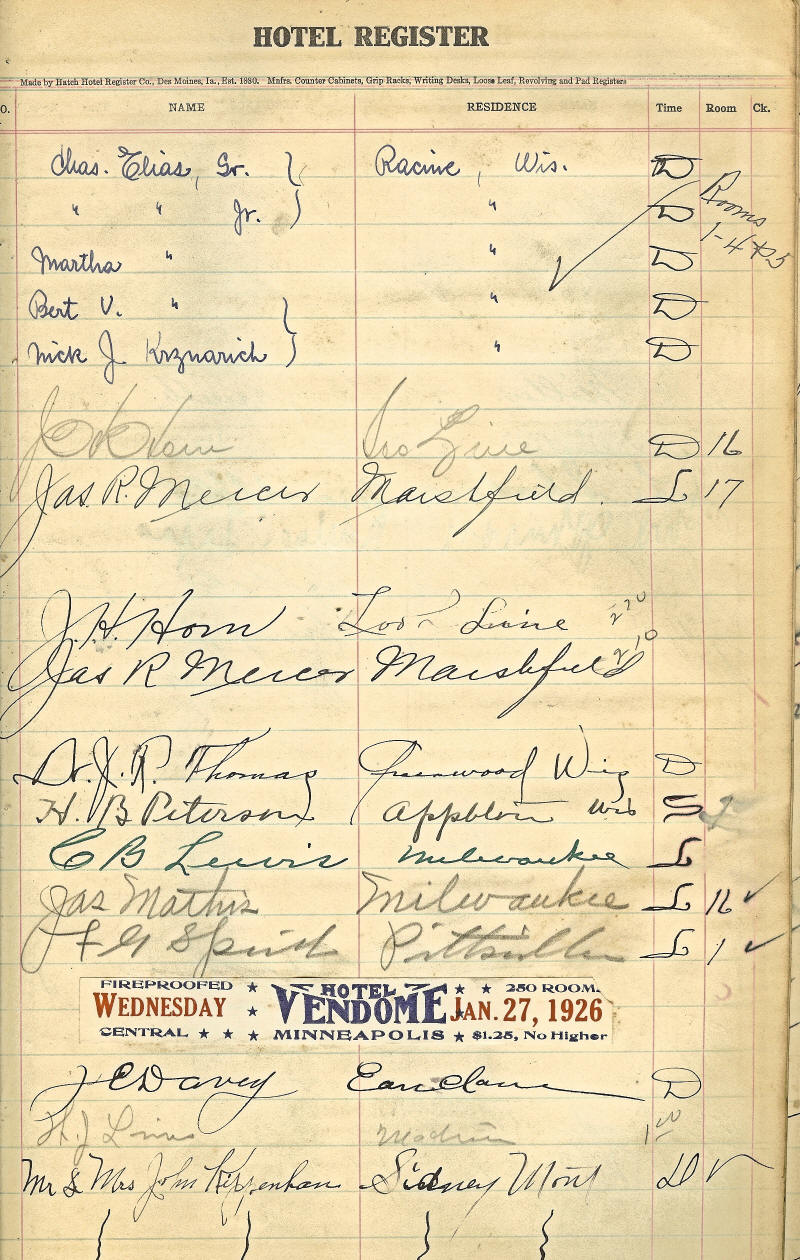 HOTEL REGISTER
Made by Hatch Hotel Register Co., Des Moines, Ia., Est. 1880. Mnfrs. Counter Cabinets, Grip Racks, Writing Desks, Loose Leaf, Revolving and Pad Registers
O. NAME RESIDENCE Time Room Ck.
Chas. Elias, Sr. } Racine, Wis. D
" " Jr. ) " D Rooms
Martha " " D 1-4 + 5
Bert V. " " D
Nick J. Krznarich } " D
D 16
Jas. R. Mercer Marshfield. L 17
J. H. Horn Line 2 20
Jas R Mercer Marshfield 2 10
Dr. J. R. Thomas Greenwood Wis D
H. B Peterson Appleton Wis S
C B Lewis Milwaukee L
Jas Mathis Milwaukee L 16 ✓
Pittsville L 1 ✓
FIREPROOFED ★ HOTEL ★ ★ 250 ROOM.
WEDNESDAY ★ VENDOME ★ JAN. 27, 1926
CENTRAL ★ ★ ★ MINNEAPOLIS ★ $1.25, No Higher
J E Davey Eau Claire D
H. J Madison 1 00
Mr & Mrs John Kippenhan Sidney Mont D ✓